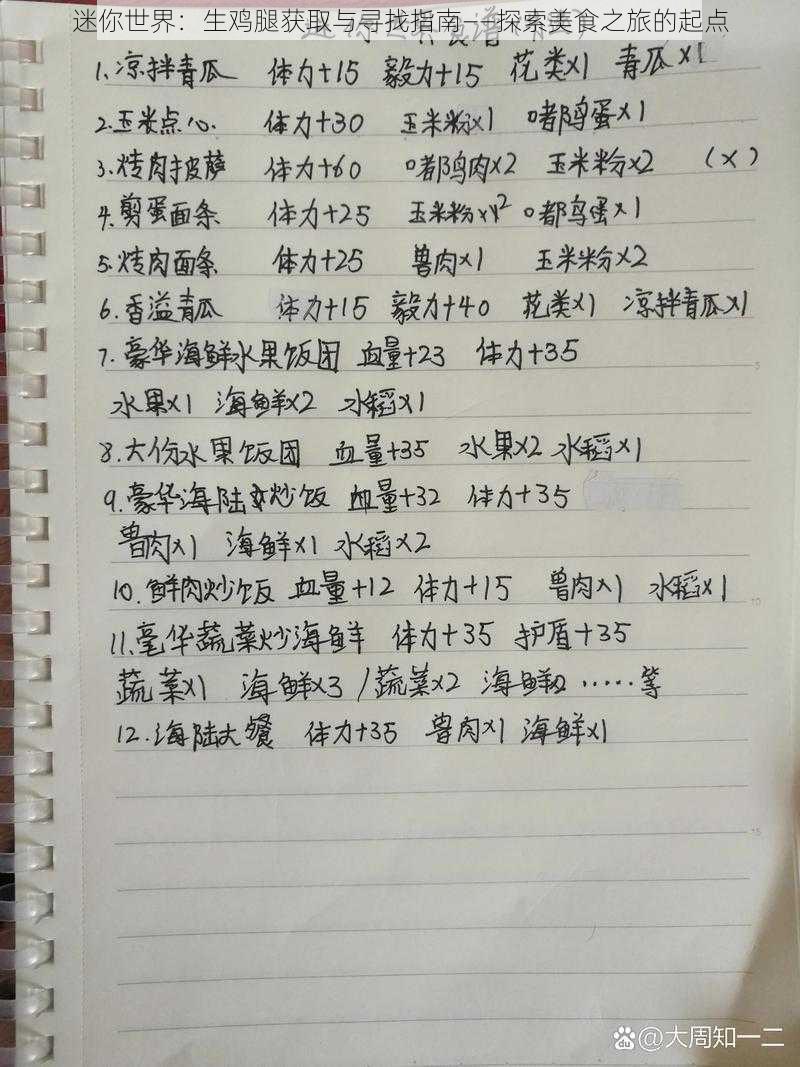 迷你世界：生鸡腿获取与寻找指南——探索美食之旅的起点
1.凉拌青瓜 体力+15 毅力+15 花类×1 青瓜×1
2.玉米点心. 体力+30 玉米粉×1 嘟鸟蛋×1
3.烤肉披萨 体力+60 嘟鸟肉×2 玉米粉×2 (×)
4.剪蛋面条 体力+25 玉米粉×2 嘟鸟蛋×1
5.烤肉面条 体力+25 兽肉×1 玉米粉×2
6.香溢青瓜 体力+15 毅力+40 花类×1 凉拌青瓜×1
7.豪华海鲜水果饭团 血量+23 体力+35
水果×1 海鲜×2 水稻×1
8.大份水果饭团 血量+35 水果×2 水稻×1
9.豪华海陆炒饭 血量+32 体力+35
兽肉×1 海鲜×1 水稻×2
10.鲜肉炒饭 血量+12 体力+15 兽肉×1 水稻×1
11.豪华蔬菜炒海鲜 体力+35 护盾+35
蔬菜×1 海鲜×3 /蔬菜×2 海鲜2 ......等
12.海陆大餐 体力+35 兽肉×1 海鲜×1
5
10
15
Bai du @大周知一二